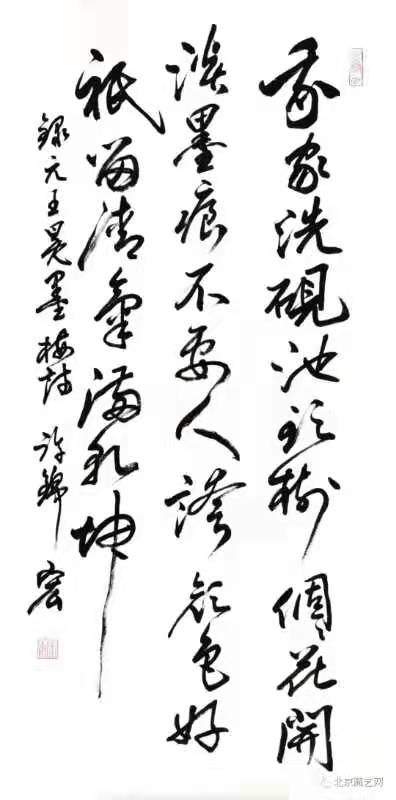 我家洗硯池頭樹個〻花開
淡墨痕不要人誇顏色好
祇留清氣滿乾坤
錄元王冕墨梅詩 許錦
北京藏艺网